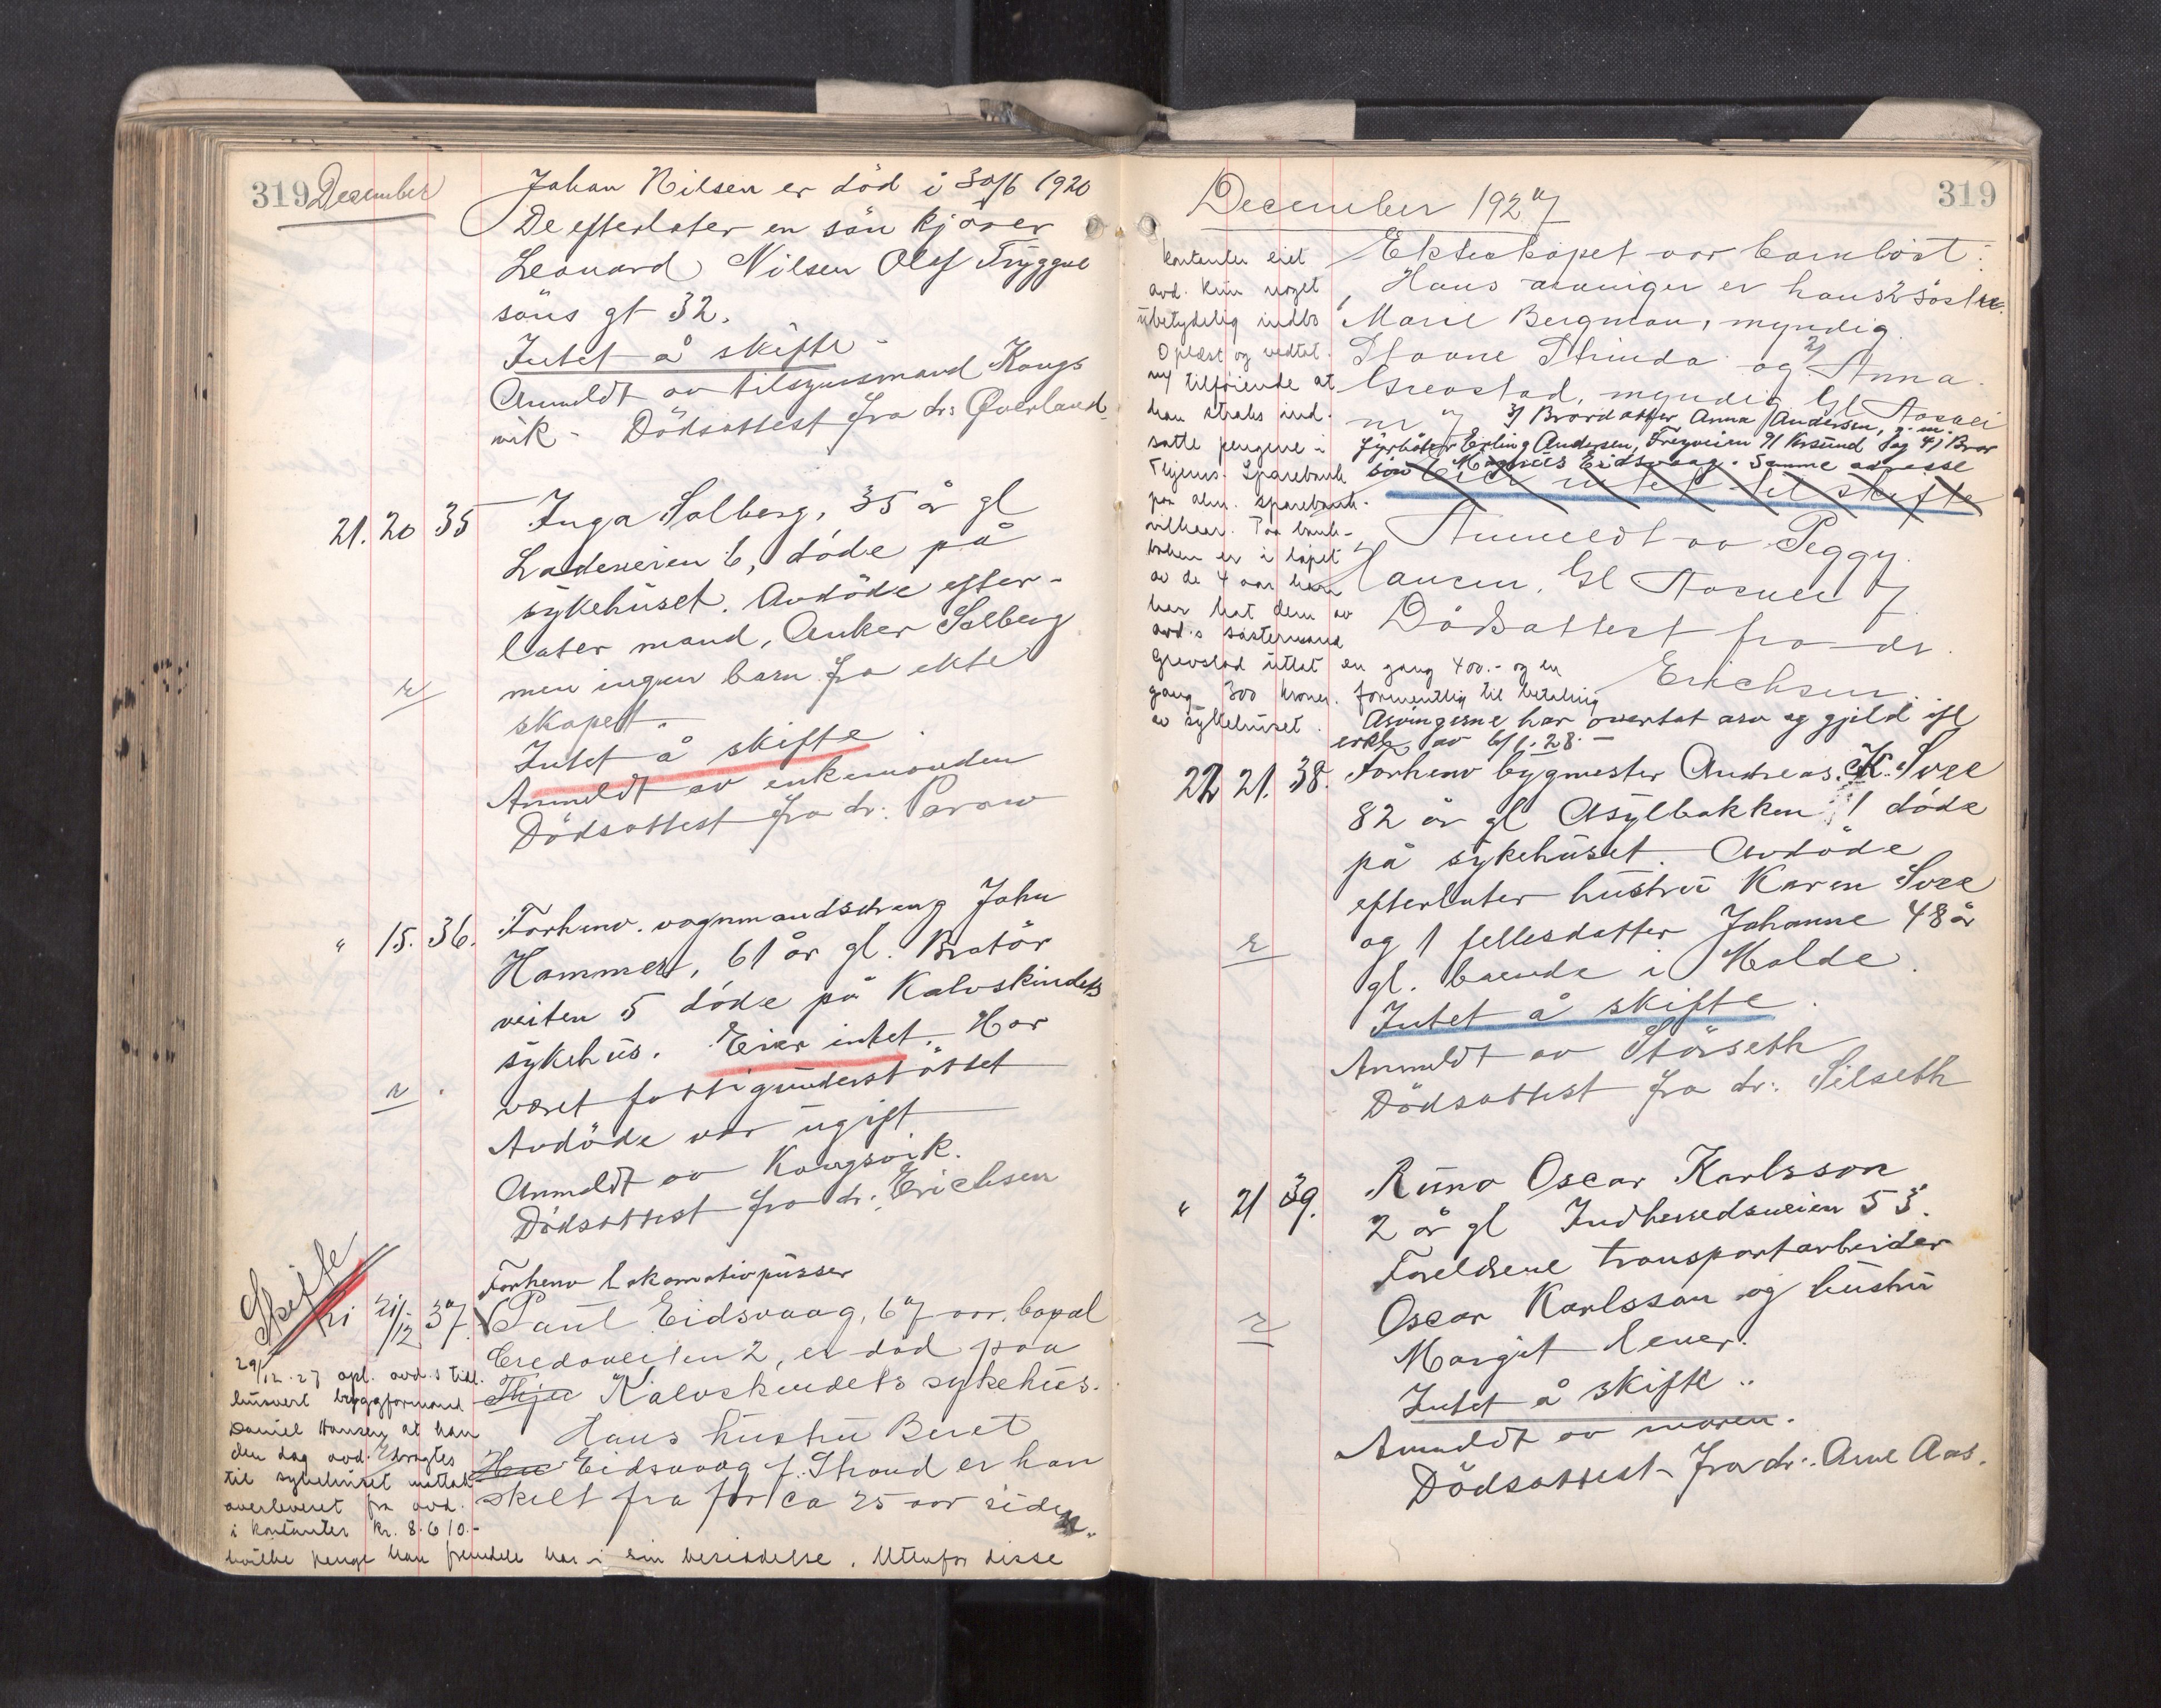 319 December
Johan Nilsen er död i 30/6 1920
De efterlater en sön kjörer
Leonard Nilsen Olaf Tryggve
söns gt 32.
Intet å skifte
Anmeldt av tilsynsmand Kongs
vik - Dödsattest fra dr: Överland
21. 20 35 Inga Solberg, 35 år gl
Ladeveien 6, döde på
sykehuset. Avdöde efter-
later mand, Anker Solberg
men ingen barn fra ekte
skapet.
Intet å skifte
Anmeldt av enkemanden
Dödsattest fra dr: Parow
" 15. 36. Forhenv. vognmandsdreng John
Hammer, 61 år gl. Bratör
veiten 5 döde på Kalvskindets
sykehus. Eier intet. Har
været fattigunderstöttet
Avdöde var ugift
Anmeldt av Kongsvik.
Dödsattest fra dr: Erichsen
Skifte
Forhenv lokomotivpusser
21 21/12 37. Paul Eidsvaag, 67 aar, bopæl
Credoveiten 2, er död paa
Kalvskindets sykehus.
Hans hustru Beret
Eidsvaag f. Strand er han
skilt fra for ca 25 aar siden.
29/12.27 opl. avd.s tidl.
husvert byggformand
Daniel Hansen at han
den dag avd. bragtes
til sykehuset mottok
overleveret fra avd.
i kontanter kr. 8.610.-
hvilke penge han fremdeles har i sin besiddelse. Utenfor disse
319
December 1927
kontanter eiet
avd. kun noget
ubetydelig indbo
Oplæst og vedtat
tilföiende at
han straks ind-
satte pengene i
Sparebank
paa alm. sparebank-
vilkaar. Paa bank-
boken er i löpet
av de 4 aar han
har hat dem av
avd.s söstermand
Grevstad uttat en gang 400.- og en
gang 300 kroner. formentlig til betaling
av sykehuset.
Ekteskapet var barnlöst:
Hans arvinger er hans 2 söstre
Marie Bergman, myndig
Stavne Strinda og 2) Anna
Grevstad, myndig Gl Aasvei
nr 7 3) Brordatter Anna Andersen, g.m.
fyrböter Erling Andersen, Freyveien 91 Krsund og 4) Bror
sön Magnus Eidsvaag. Samme adresse
Eier intet til skifte
Anmeldt av Peggy
Hansen, Gl Aasvei 7
Dödsattest fra dr.
Erichsen.
Arvingerne har overtat arv og gjeld ifl
erkl. av 6/1.28.-
22 21. 38. Forhenv bygmester Andreas K. Svee
82 år gl Asylbakken 1 döde
på sykehuset. Avdöde
efterlater hustru Karen Svee
og 1 fellesdatter Johanne 48 år
gl. boende i Molde.
Intet å skifte.
Anmeldt av Störseth
Dödsattest fra dr: Silseth
" 21 39. Runo Oscar Karlsson
2 år gl Indherredsveien 53.
Foreldrene transportarbeider
Oscar Karlsson og hustru
Margit lever.
Intet å skifte..
Anmeldt av moren.
Dödsattest fra dr: Arne Aas.